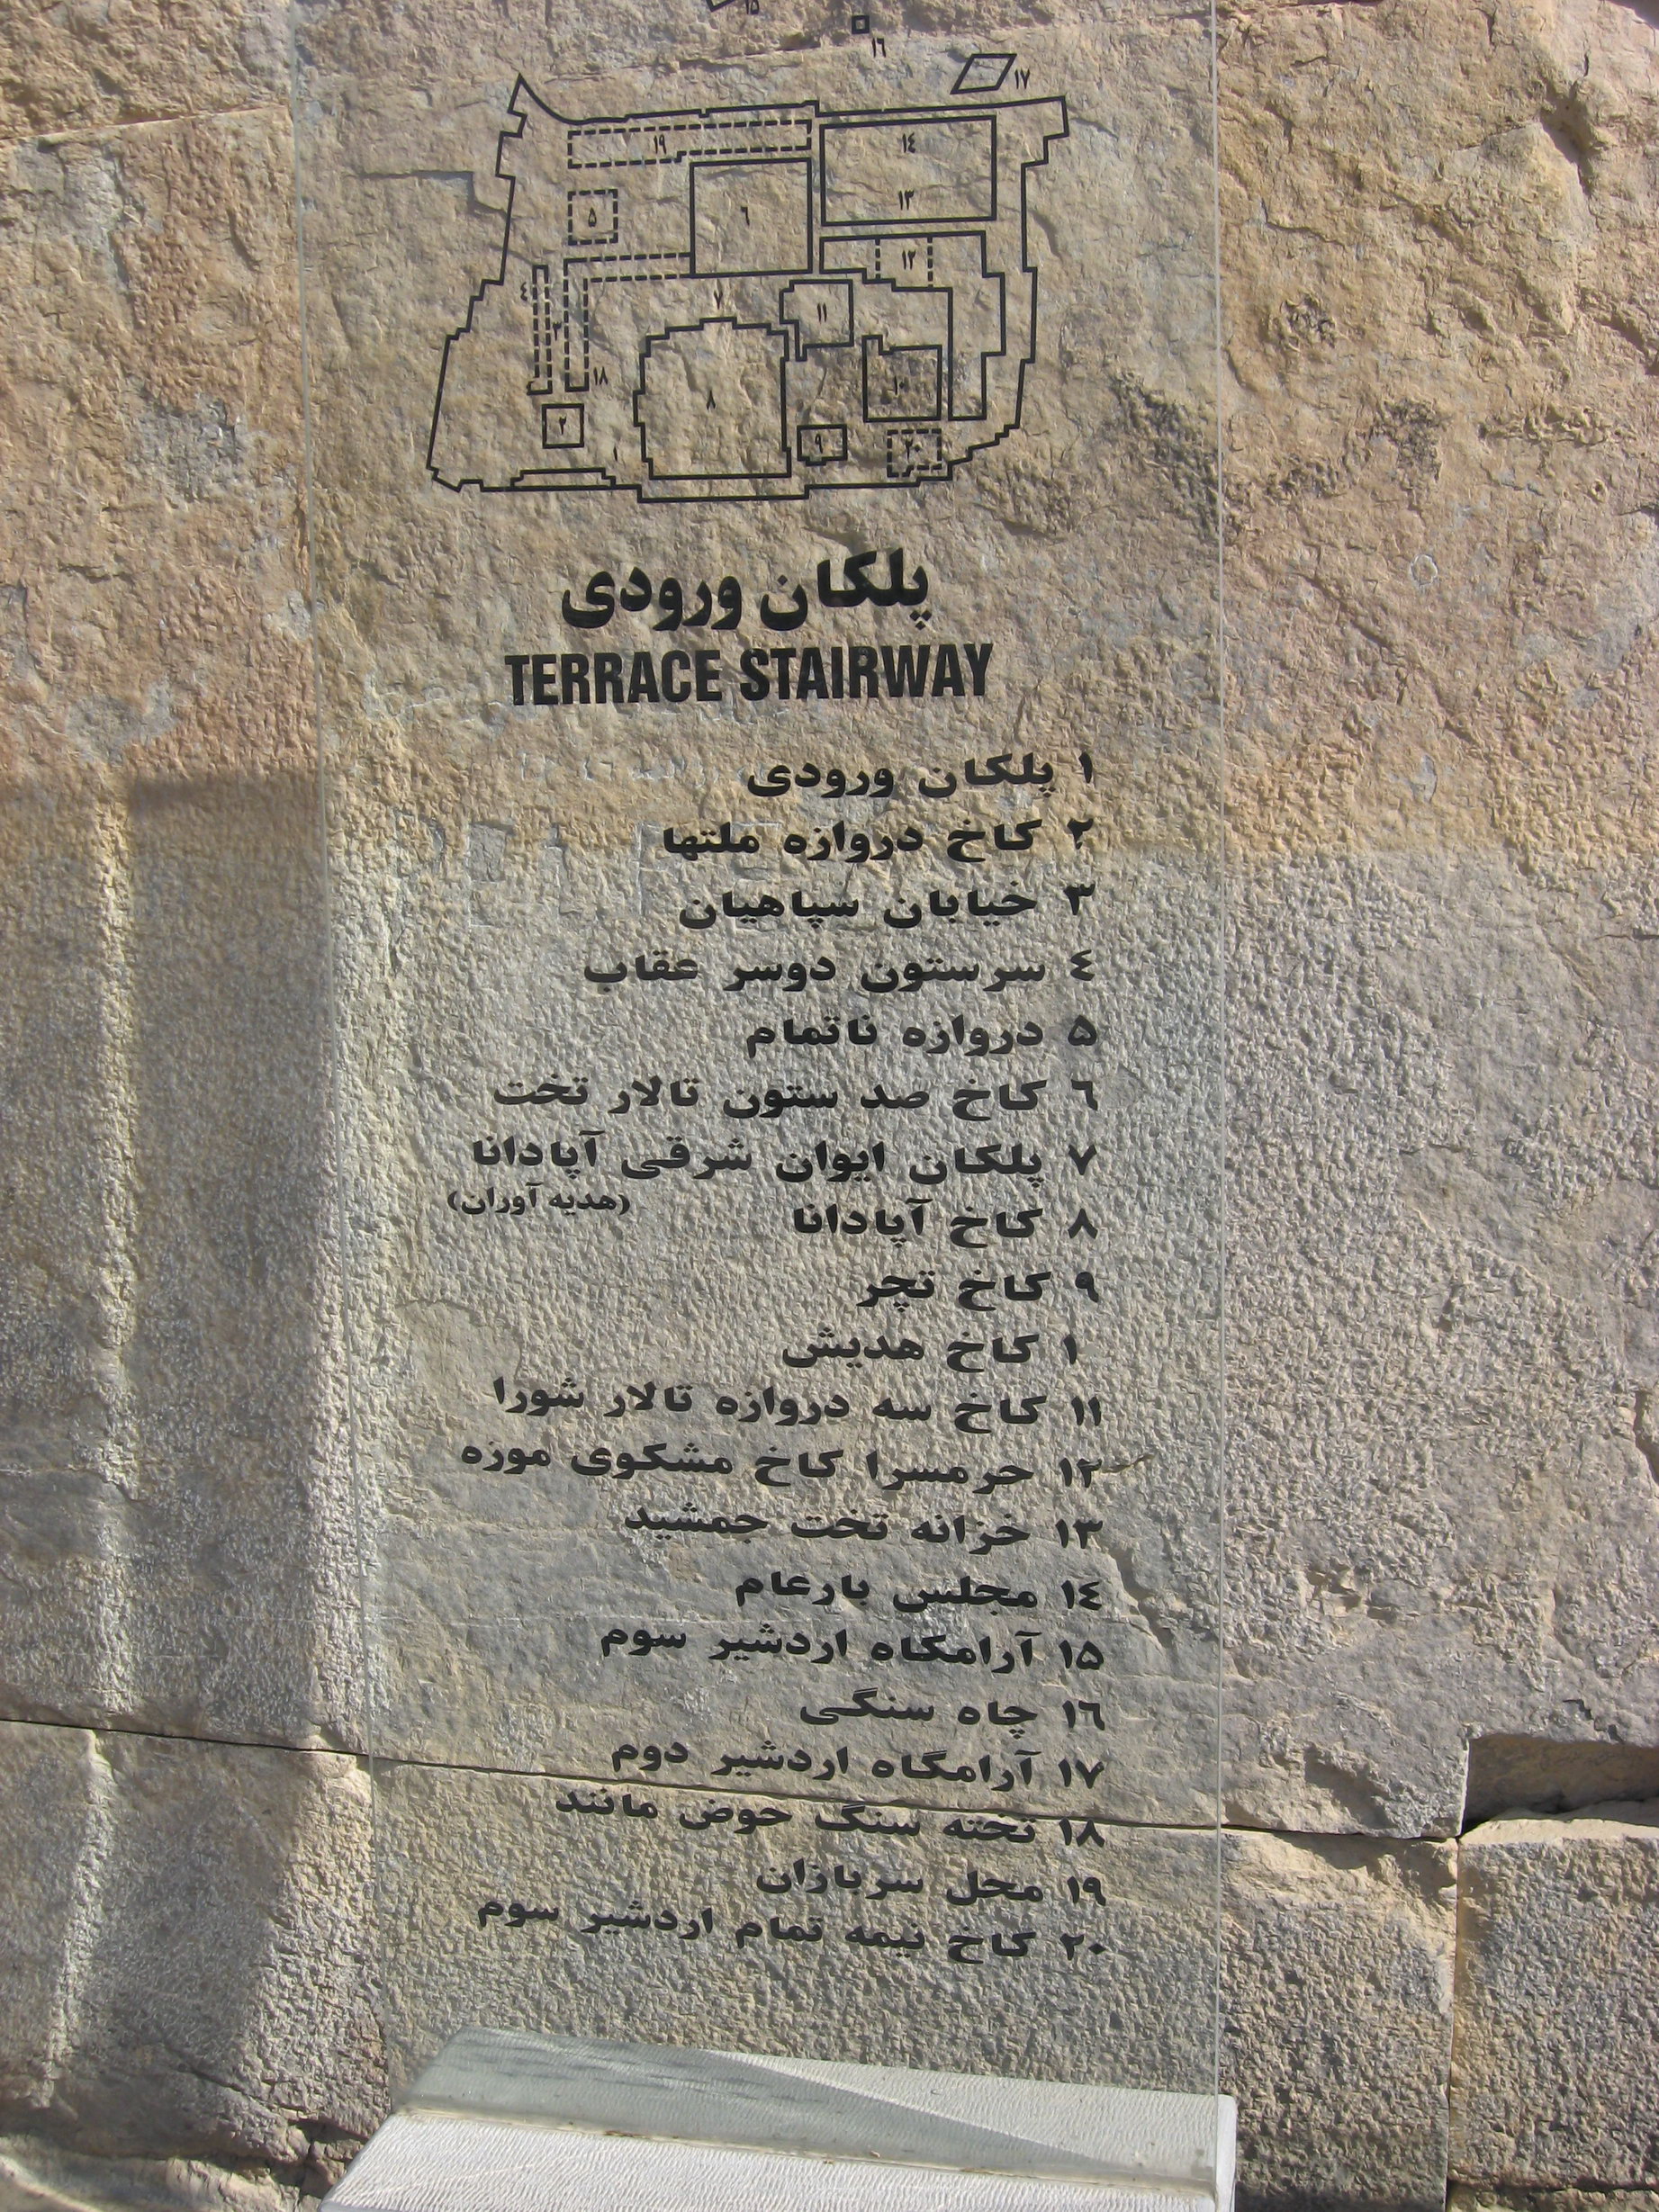 ۱۵
۱۶
۱۷
۱۹
۱۴
۱۳
۵
۶
۱۲
٤
۳
۷
۱۱
۱۸
۸
۱۰
۲
۱
۹
۲۰
پلکان ورودی
TERRACE STAIRWAY
۱ پلکان ورودی
۲ کاخ دروازه ملتها
۳ خیابان سپاهیان
٤ سرستون دوسر عقاب
۵ دروازه ناتمام
٦ کاخ صد ستون تالار تخت
۷ پلکان ایوان شرقی آپادانا
(هدیه آوران)
۸ کاخ آپادانا
۹ کاخ تچر
۱ کاخ هدیش
۱۱ کاخ سه دروازه تالار شورا
۱۲ حرمسرا کاخ مشکوی موزه
۱۳ خزانه تخت جمشید
۱٤ مجلس بارعام
۱۵ آرامکاه اردشیر سوم
۱٦ چاه سنگی
۱۷ آرامگاه اردشیر دوم
۱۸ تخته سنگ حوض مانند
۱۹ محل سربازان
۲۰ کاخ نیمه تمام اردشیر سوم